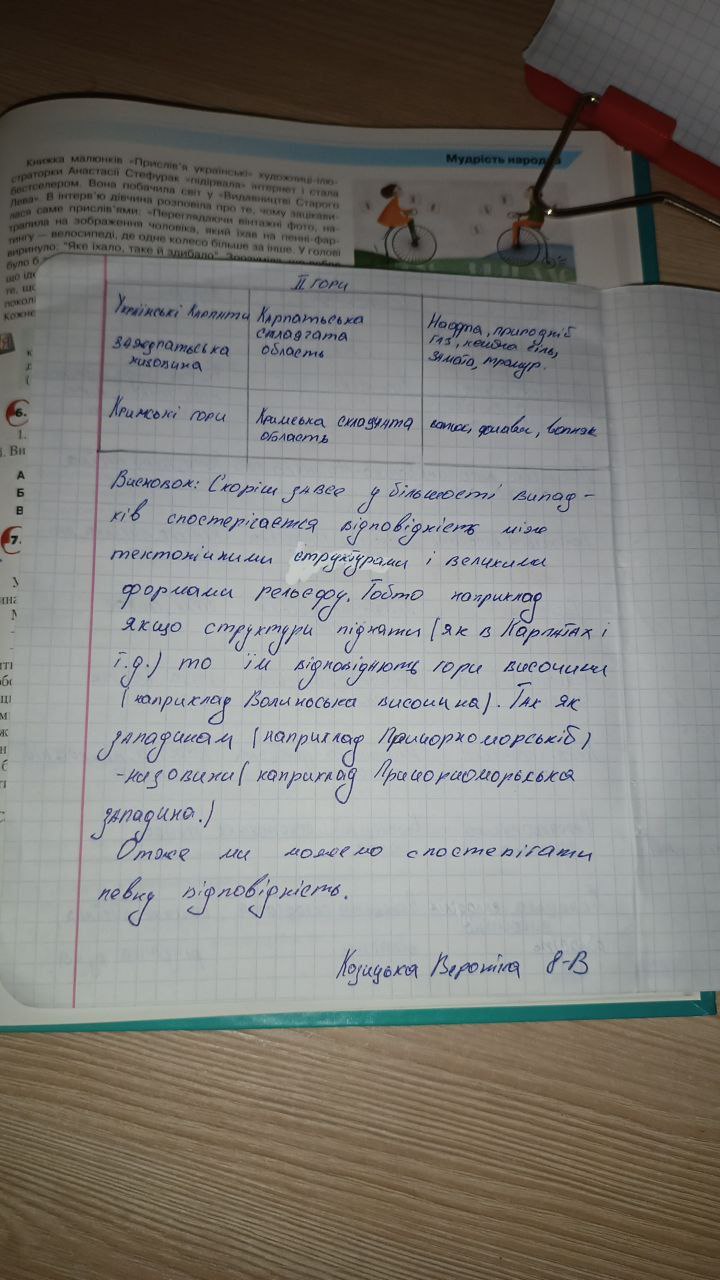 Мудрість народна
Книжка малюнків «Прислів'я українські» художниці-ілю-
страторки Анастасії Стефурак «підірвала» інтернет і стала
бестселером. Вона побачила світ у «Видавництві Старого
Лева». В інтерв'ю дівчина розповіла про те, чому зацікави-
лася саме прислів'ями: «Переглядаючи вінтажні фото, на-
трапила на зображення чоловіка, який їхав на пенні-фар-
тингу — велосипеді, де одне колесо більше за інше. У голові
виринуло: "Яке їхало, таке й здибало".
було б
що іде
те, що
поколі
Кожне
6.
1.
і. Ви
А
Б
В
7.
II гори
Українські Карпати
Закарпатська
низовина
Карпатська
складчата
область
Нафта, природній
газ, кам'яна сіль,
золото, мрамур.
Кримські гори
Кримська складчата
область
вапняк
Висновок: Скоріш завсе у більшості випад-
ків спостерігається відповідність між
тектонічними структурами і великими
формами рельєфу. Тобто наприклад
якщо структури підняти (як в Карпатах і
т.д.) то їм відповідають гори височини
(наприклад Волиноська височина). Так як
западинам (наприклад Причорноморській)
-низовини (наприклад Причорноморькька
западина.)
Отже ми можемо спостерігати
певну відповідність.
Козицька Вероніка 8-В